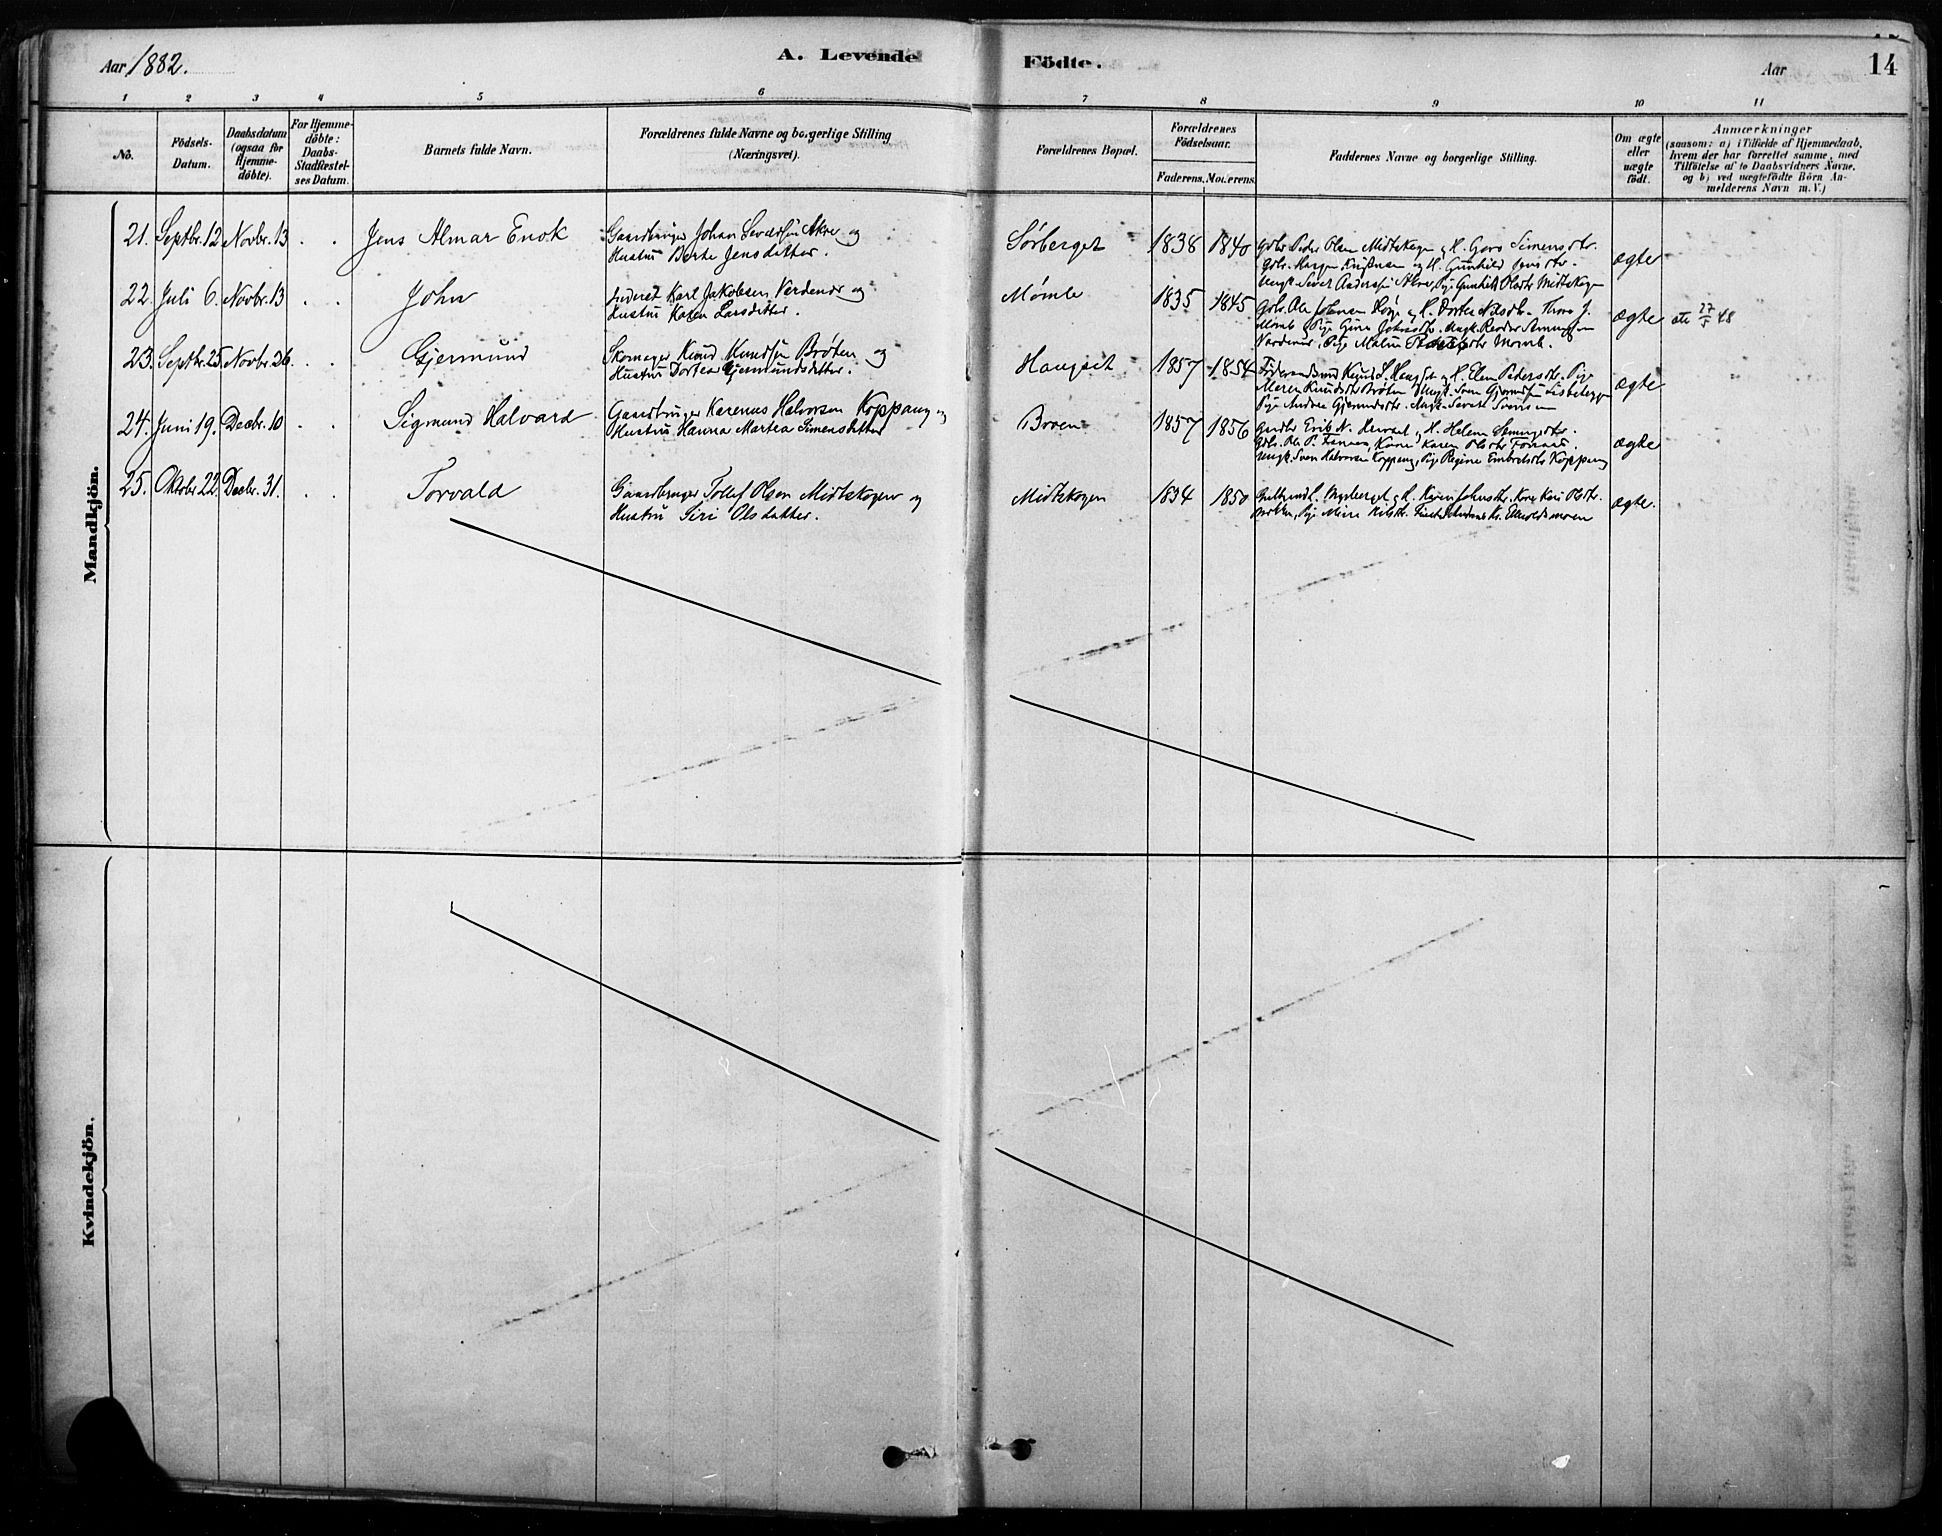 Aar 1882.
A. Levende Födte.
Aar
14
1 2 3 4 5 6 7 8 9 10 11
No.
Födsels-Datum.
Daabsdatum (ogsaa for Hjemme-döbte).
For Hjemme-döbte: Daabs-Stadfæstel-ses Datum.
Barnets fulde Navn.
Forældrenes fulde Navne og borgerlige Stilling (Næringsvei).
Forældrenes Bopæl.
Forældrenes Födselsaar.
Faderens. Moderens.
Faddernes Navne og borgerlige Stilling.
Om ægte eller uægte födt.
Anmærkninger
(saasom: a) i Tilfælde af Hjemmedaab,
hvem der har forrettet samme, med
Tilföielse af to Daabsvidners Navne,
og b) ved uægtefödte Börn An-
melderens Navn m. V.)
Mandkjön.
21. Septbr. 12 Novbr. 13 . . Jens Almar Enok
Gaardbruger Johan Akre og
Hustru Berte Jensdatter.
Sørberget 1838 1840
Gbr. Peder Olsen Midtskogen og H. Goro Simensdtr.
og H. Gunhild
Ungk. Siver Andersen Akre, Pige Gunhild Olsdtr Midtskogen
ægte
22. Juli 6. Novbr. 13 . . John
Inderst Karl Jakobsen Vardenær og
Hustru Karen Larsdatter.
Mømle 1835 1845
H. Dortea
Pige Gina Johnsdtr. Ungk. Reodor
Pige Malin
ægte att 27/5 48
23. Septbr. 25. Novbr. 26. . . Gjermund
Skomager Knud Knudsen Bröten og
Hustru Dortea Gjermundsdatter.
Haugset 1857 1854
Føderaadsmand Knud S. Haugset og H. Elen Pedersdtr. Pige
Maren Knudsdtr Bröten, Ungk. Sven Gjermundsen
Pige Andrea Gjermundsdtr. Ungk.
ægte
24. Juni 19. Decbr. 10 . . Sigmund Halvard
Gaardbruger Karenus Halvorsen Koppang og
Hustru Hanna Martea Simensdatter
Broen 1857 1856
Erik N. H. Helene
Gbr. Ole P. Fornæs, Kone Karen Olsdtr Fornæs,
Ungk. Sven Halvorsen Koppang, Pige Regine Embretsdtr Koppang
ægte
25. Oktbr. 22. Decbr. 31. . . Torvald
Gaardbruger Tollef Olsen Midtskogen og
Hustru Siri Olsdatter.
Midtskogen 1834 1850
H. Karen Johnsdtr. Kone Kari Olsdtr.
Pige Mina
ægte.
Kvindekjön.